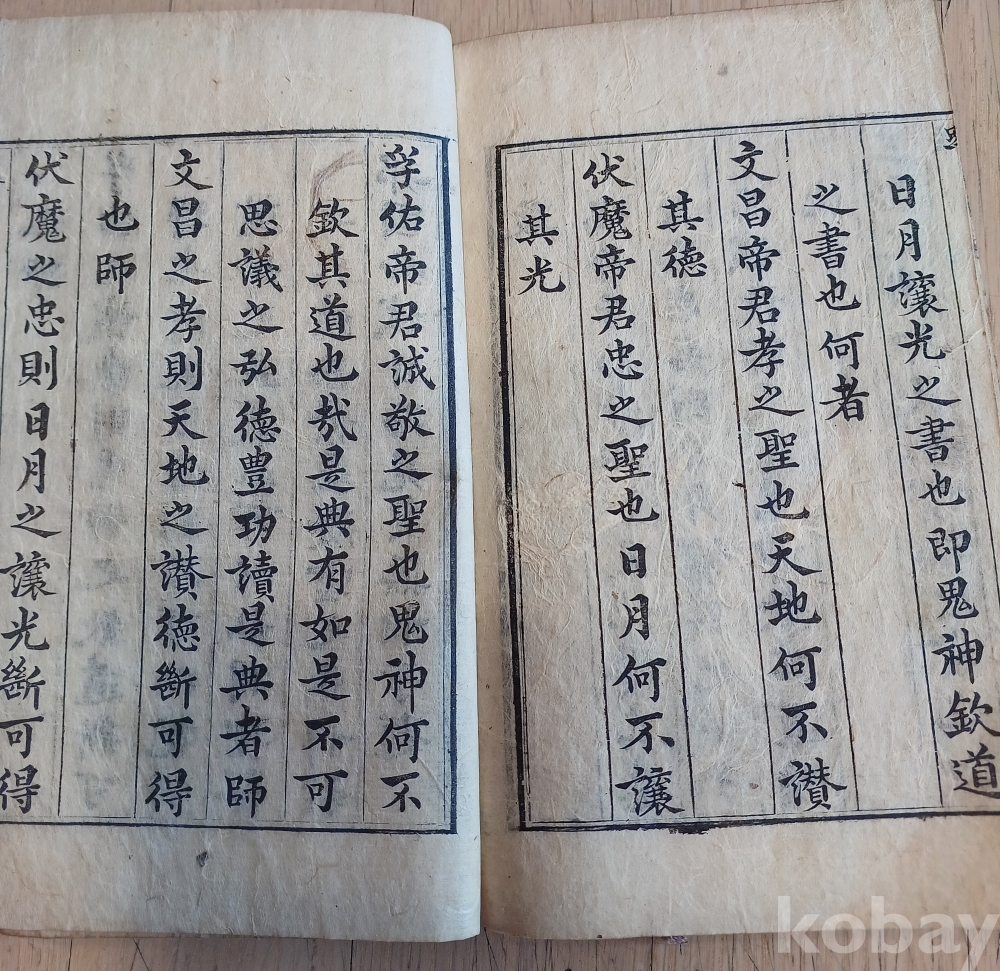 日月讓光之書也即鬼神欽道
之書也何者
文昌帝君孝之聖也天地何不讃
其德
伏魔帝君忠之聖也日月何不讓
其光
孚佑帝君誠敬之聖也鬼神何不
欽其道也哉是典有如是不可
思議之弘德豊功讀是典者師
文昌之孝則天地之讃德斷可得
也師
伏魔之忠則日月之讓光斷可得
kobay